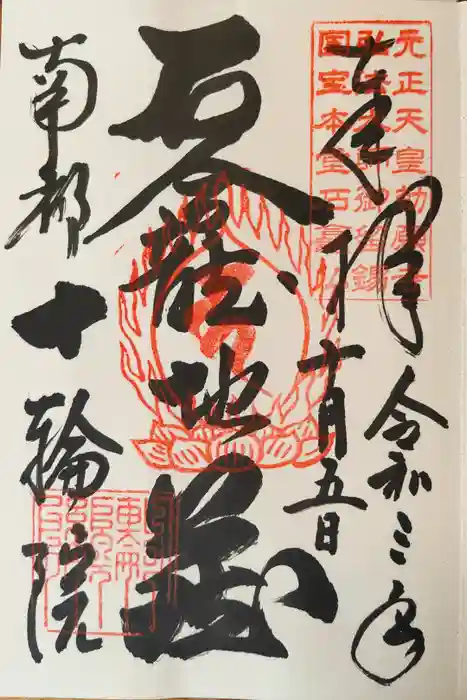 奉拝
令和三年
十月五日
石龕地蔵
南都十輪院
元正天皇勅願寺
弘法大師御留錫
国宝本堂石龕仏